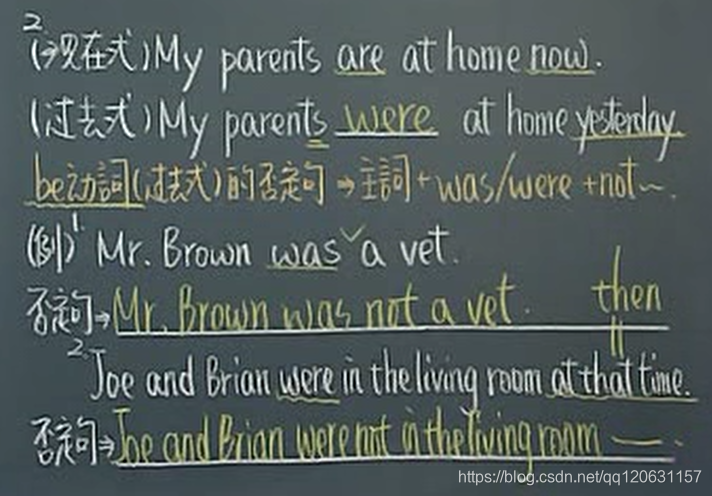 2
(现在式)My parents are at home now.
(过去式)My parents were at home yesterday.
be动詞(过去式)的否定句→主詞+was/were+not~.
(例)1 Mr. Brown was a vet.
否定句→Mr. Brown was not a vet. then
2. Joe and Brian were in the living room at that time.
否定句→Joe and Brian were not in the living room —.
https://blog.csdn.net/qq120631157